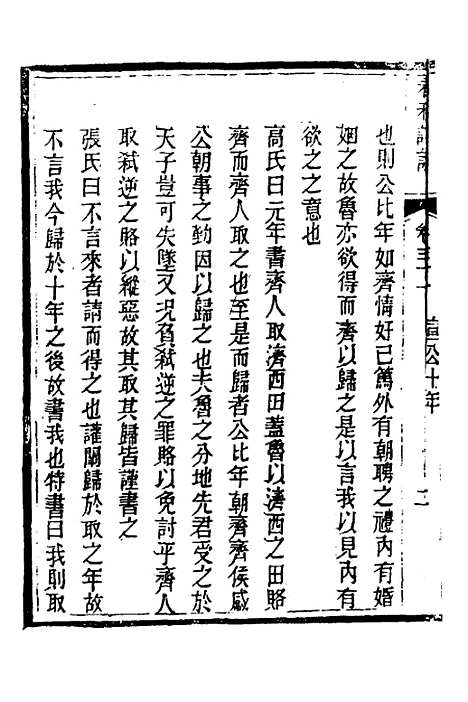 也則公比年如齊情好已篤外有朝聘之禮內有婚
姻之故魯亦欲得而齊以歸之是以言我以見內有
欲之之意也
高氏曰元年書齊人取濟西田蓋魯以濟西之田賂
齊而齊人取之也至是而歸者公比年朝齊齊侯感
公朝事之勤因以歸之也夫魯之分地先君受之於
天子豈可失墜又況負弒逆之罪賂以免討乎齊人
取弒逆之賂以縱惡故其取其歸皆謹書之
張氏曰不言來者請而得之也讙闡歸於取之年故
不言我今歸於十年之後故書我也特書曰我則取
宣公十年
二